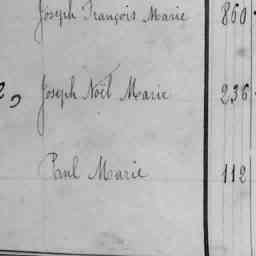 Joseph François Marie 860
Joseph Noël Marie 236
Paul Marie 112